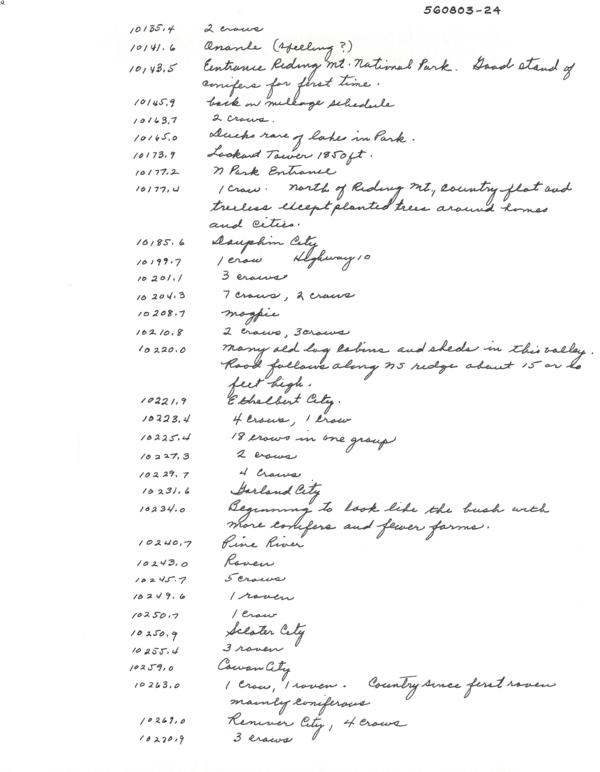 560803-24
10135.4 2 crows
10141.6 Onanle (spelling?)
10143.5 Entrance Riding Mt. National Park. Good stand of
conifers for first time.
10145.9 back on mileage schedule
10163.7 2 crows.
10165.0 Ducks rare of lakes in Park.
10173.9 Lookout Tower 1850 ft.
10177.2 N Park Entrance
10177.4 1 crow. North of Riding Mt, country flat and
treeless except planted trees around homes
and cities.
10185.6 Dauphin City
10199.7 1 crow Highway 10
10201.1 3 crows
10204.3 7 crows, 2 crows
10208.7 magpie
10210.8 2 crows, 3 crows
10220.0 Many old log cabins and sheds in this valley.
Road follows along NS ridge about 15 or 20
feet high.
10221.9 Ethelbert City.
10223.4 4 crows, 1 crow
10225.4 18 crows in one group
10227.3 2 crows
10229.7 4 crows
10231.6 Garland City
10234.0 Beginning to look like the bush with
more conifers and fewer farms.
10240.7 Pine River
10243.0 Raven
10245.7 5 crows
10249.6 1 raven
10250.7 1 crow
10250.9 Sclater City
10255.4 3 raven
10259.0 Cowan City
10263.0 1 crow, 1 raven. Country since first raven
mainly coniferous
10269.0 Renwer City, 4 crows
10270.9 3 crows